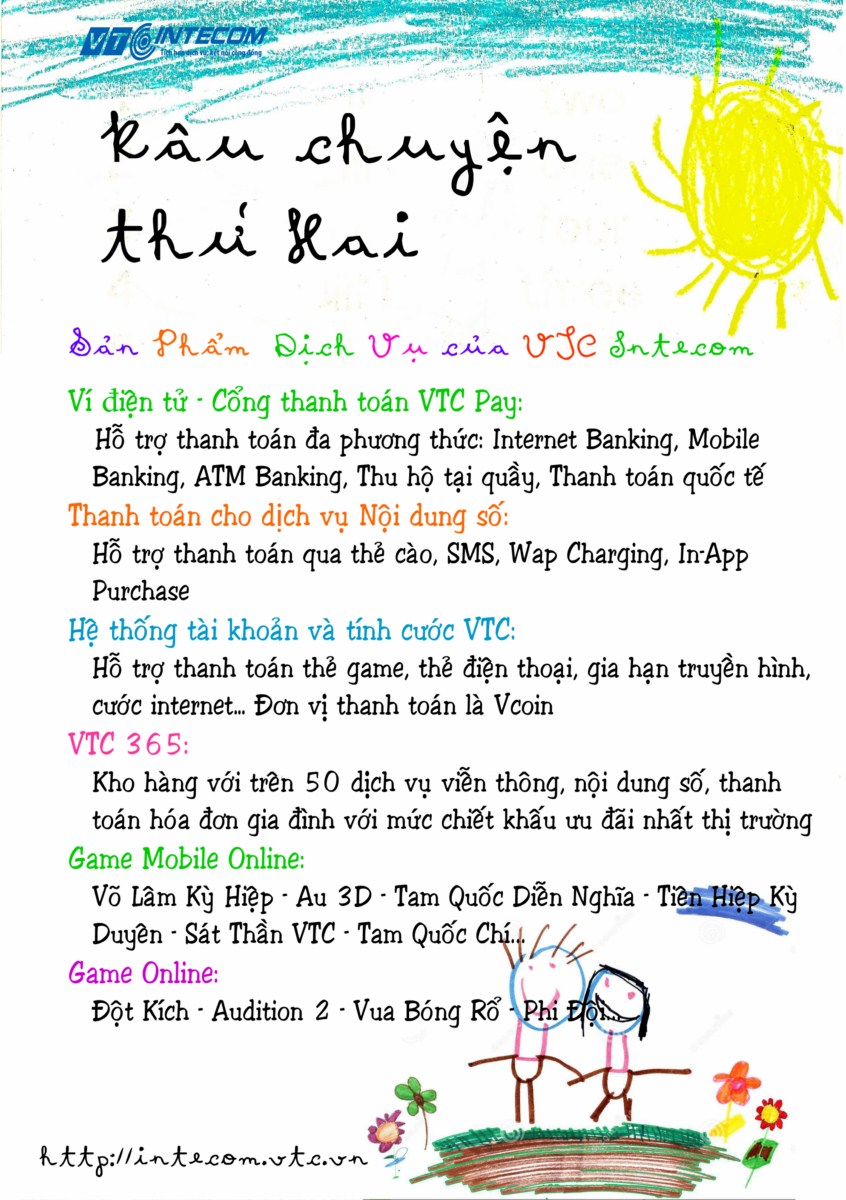 VTC INTECOM
Tích hợp dịch vụ, kết nối cộng đồng
Kâu chuyện
thứ Hai
Sản Phẩm Dịch Vụ của VTC Intecom
Ví điện tử - Cổng thanh toán VTC Pay:
Hỗ trợ thanh toán đa phương thức: Internet Banking, Mobile
Banking, ATM Banking, Thu hộ tại quầy, Thanh toán quốc tế
Thanh toán cho dịch vụ Nội dung số:
Hỗ trợ thanh toán qua thẻ cào, SMS, Wap Charging, In-App
Purchase
Hệ thống tài khoản và tính cước VTC:
Hỗ trợ thanh toán thẻ game, thẻ điện thoại, gia hạn truyền hình,
cước internet... Đơn vị thanh toán là Vcoin
VTC 365:
Kho hàng với trên 50 dịch vụ viễn thông, nội dung số, thanh
toán hóa đơn gia đình với mức chiết khấu ưu đãi nhất thị trường
Game Mobile Online:
Võ Lâm Kỳ Hiệp - Au 3D - Tam Quốc Diễn Nghĩa - Tiên Hiệp Kỳ
Duyên - Sát Thần VTC - Tam Quốc Chí...
Game Online:
Đột Kích - Audition 2 - Vua Bóng Rổ - Phi Đội...
http://intecom.vtc.vn